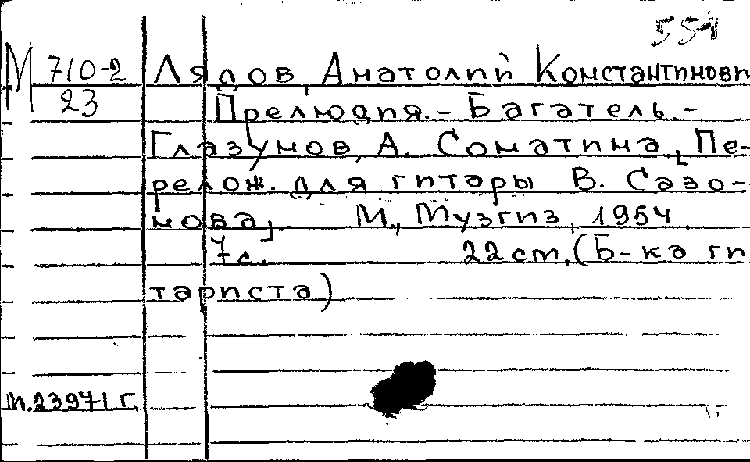 551
М 710-2 Лядов, Анатолий Константинови
23 Прелюдия. - Багатель. -
Глазунов, А. Сонатина [Пе-
релож. для гитары В. Сазо-
нова] М., Музгиз, 1954.
7с. 22 cm. (Б-ка ги
тариста)
п.23971 г.